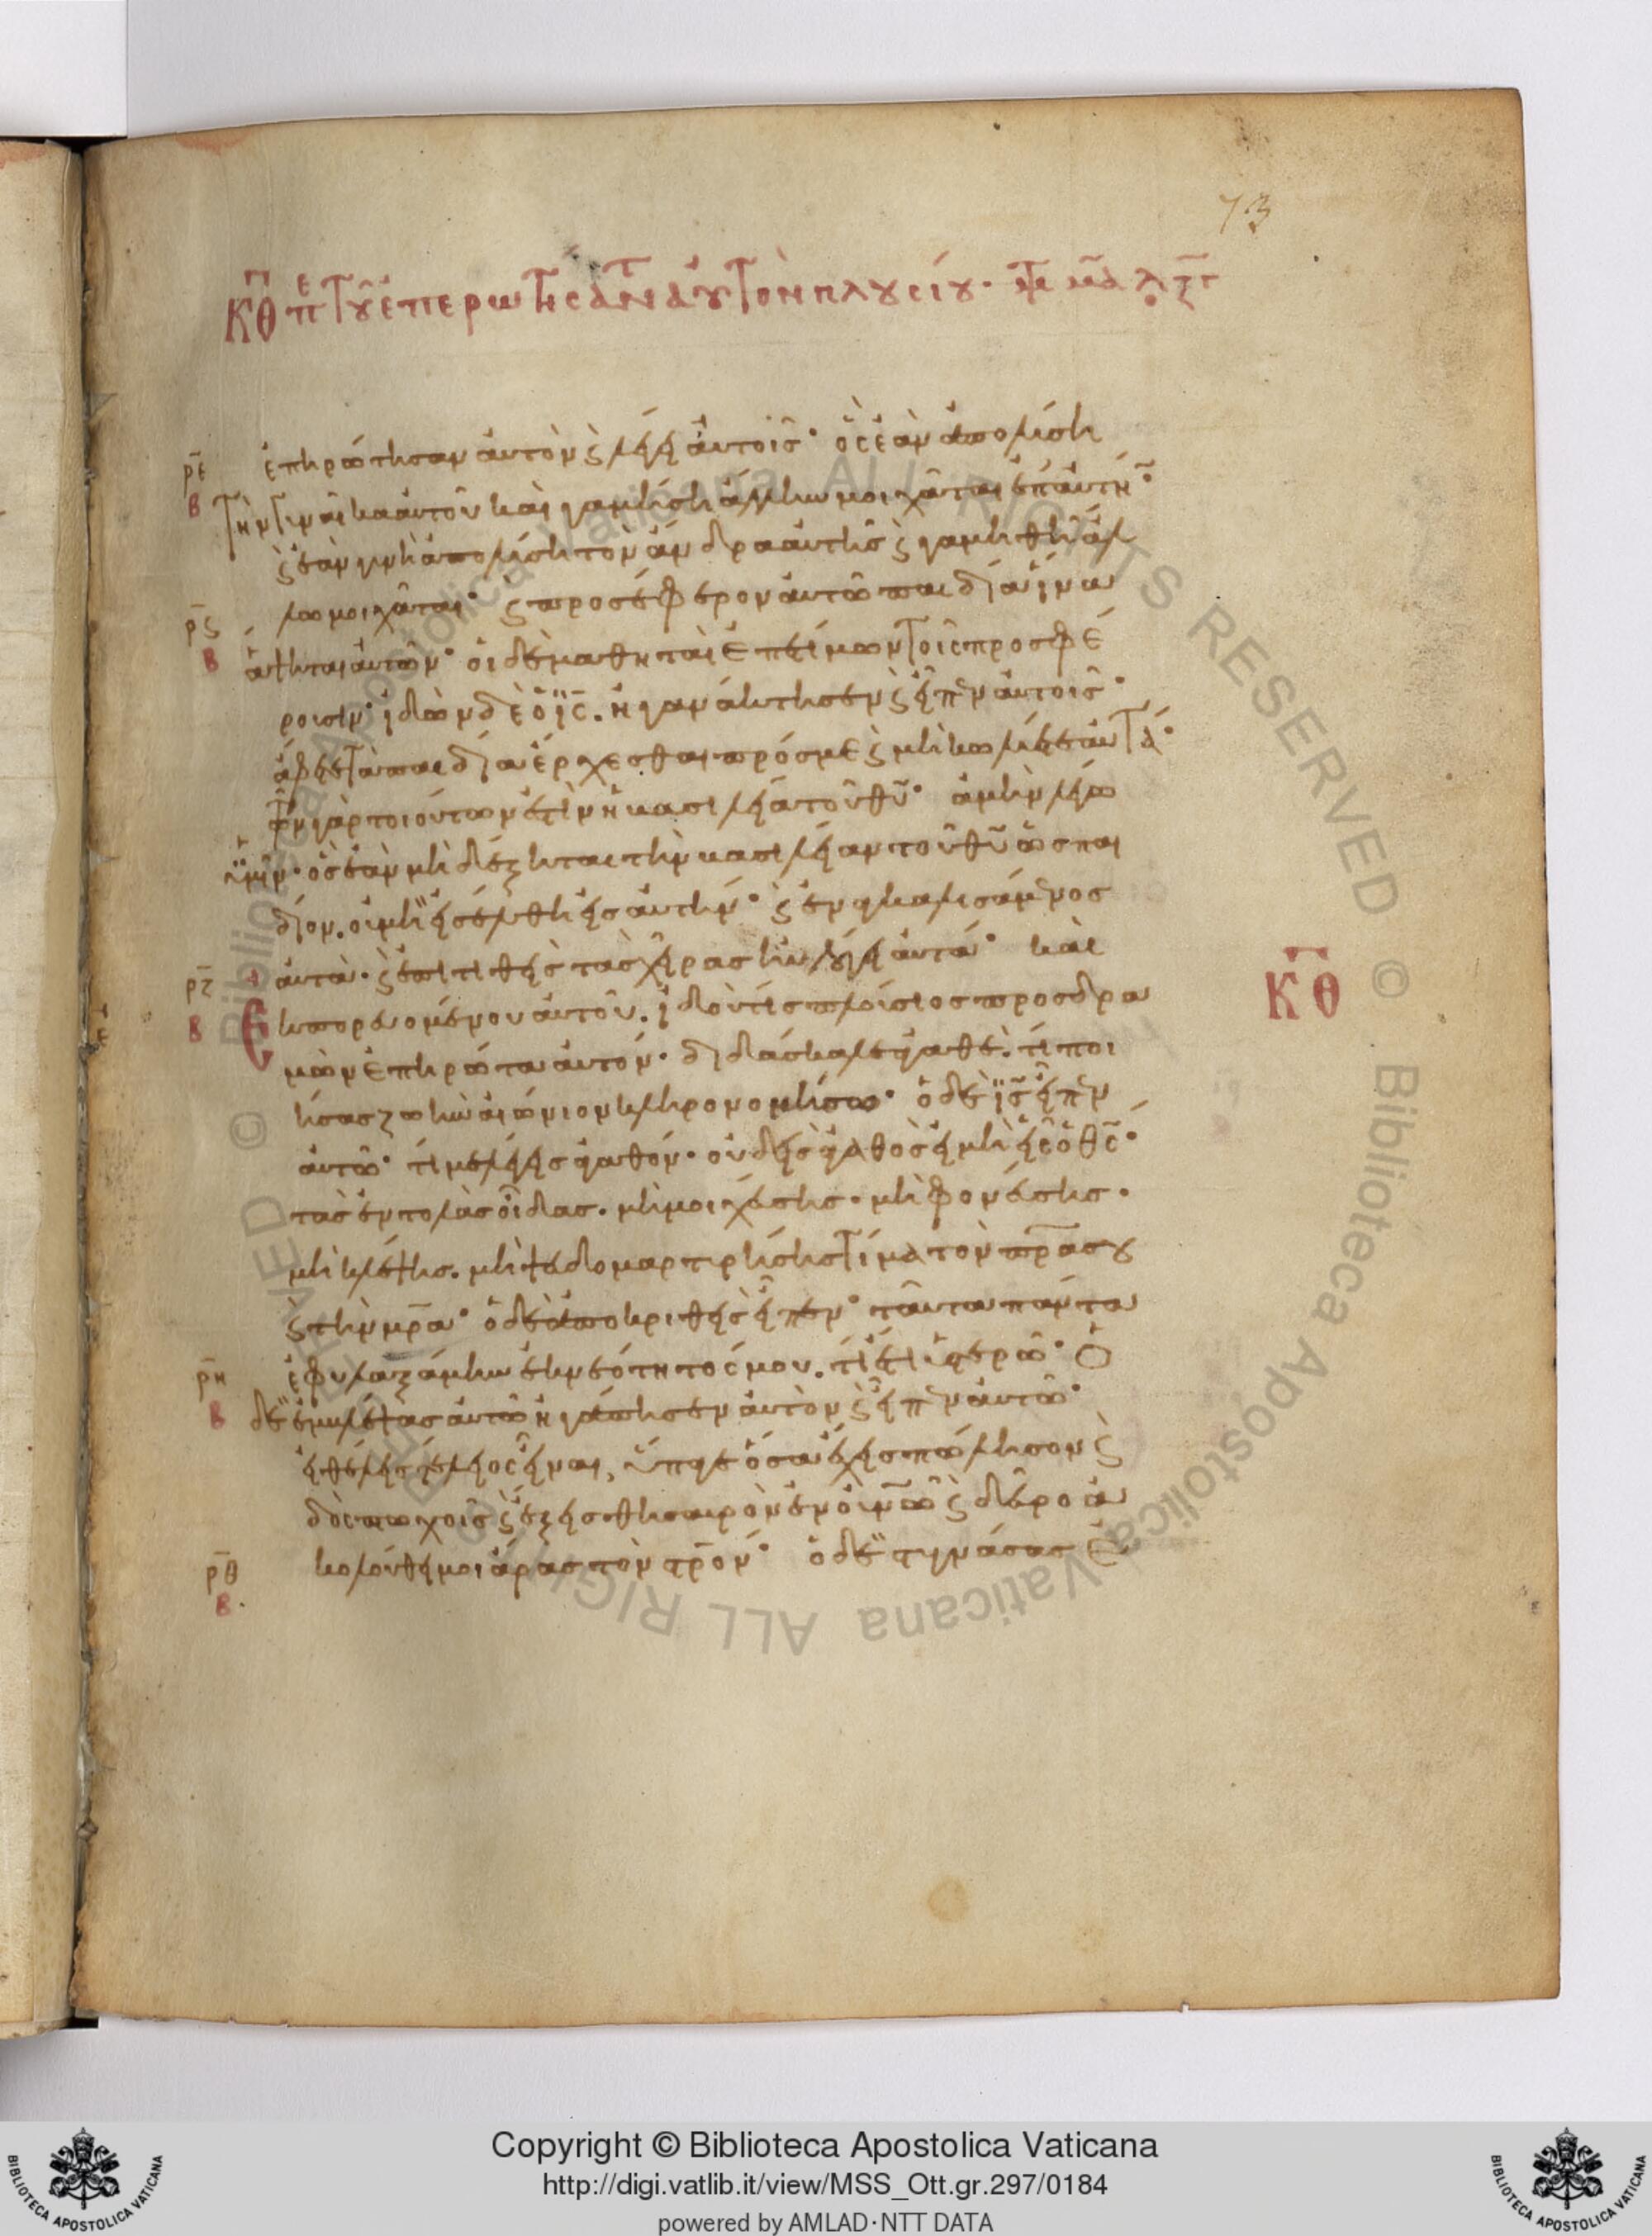 73
κθ πε τοῦ ἐπερωτήσαντ αὐτὸν πλουσίου·
ρε ἐπηρώτησαν αὐτὸν ϛ λέγει αὐτοῖς· ὃς ἐὰν ἀπολύση
β τὴν γυναῖκα αὐτοῦ καὶ γαμήση ἄλλην μοιχᾶται ἐπ' αὐτή·
ϛ ἐὰν γυνὴ ἀπολύση τὸν ἄνδρα αὐτῆς ϛ γαμηθῆ ἄλ
ρϛ λω μοιχᾶται· ϛ προσέφερον αὐτῶ παιδία ἵνα
β ἅψηται αὐτῶν· οἱ δὲ μαθηταὶ ἐπετίμων τοῖς προσφέ
ρουσιν· ἰδὼν δὲ ὁ ἰς. ἠγανάκτησεν ϛ εἶπεν αὐτοῖς·
ἄφετε τὰ παιδία ἔρχεσθαι πρός με ϛ μὴ κωλύετε αὐτά·
τῶν γὰρ τοιούτων ἐστὶν ἡ βασιλεία τοῦ θυ· ἀμὴν λέγω
ὑμῖν· ὃς ἐὰν μὴ δέξηται τὴν βασιλείαν τοῦ θυ ὡς παι
δίον. οὐ μὴ εἰσέλθη εἰς αὐτήν· ϛ ἐναγκαλισάμενος
ρζ αὐτὰ· ϛ ἐπιτιθεὶς τὰς χεῖρας ηὐλόγει αὐτά· καὶ
β Ἐκπορευομένου αὐτοῦ. ἰδού τις πλούσιος προσδρα
κθ
μὼν ἐπηρώτα αὐτόν· διδάσκαλε ἀγαθέ. τί ποι
ήσας ζωὴν αἰώνιον κληρονομήσω· ὁ δὲ ἰς εἶπεν
αὐτῶ· τί με λέγεις ἀγαθόν· οὐδεὶς ἀγαθὸς εἰ μὴ εἷς ὁ θς·
τὰς ἐντολὰς οἶδας. μὴ μοιχεύσης· μὴ φονεύσης·
μὴ κλέψης. μὴ ψευδομαρτυρήσης τίμα τὸν πρα σου
ϛ τὴν μρα· ὁ δὲ ἀποκριθεὶς εἶπεν· ταῦτα πάντα
ρη ἐφυλαξάμην ἐκ νεότητός μου. τί ἔτι ὑστερῶ· ὁ
β δὲ ἐμβλέψας αὐτῶ ἠγάπησεν αὐτὸν ϛ εἶπεν αὐτῶ·
εἰ θέλεις τέλειος εἶναι, ὕπαγε ὅσα ἔχεις πώλησον ϛ
δὸς πτωχοῖς ϛ ἕξεις θησαυρὸν ἐν οὐνω ϛ δεῦρο ἀ
ρθ κολούθει μοι ἄρας τὸν σρον· ὁ δὲ στυγνάσας ἐ
β·
Copyright © Biblioteca Apostolica Vaticana
http://digi.vatlib.it/view/MSS_Ott.gr.297/0184
powered by AMLAD·NTT DATA